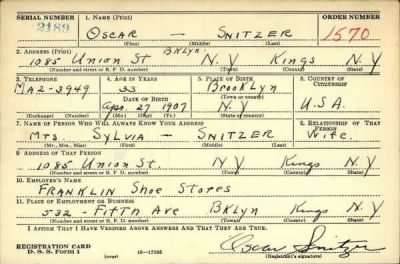 SERIAL NUMBER 1. NAME (Print) ORDER NUMBER
2189 OSCAR — SNITZER 1570
(First) (Middle) (Last)
2. ADDRESS (Print) BKLYN
1085 Union St N.Y Kings N.Y
(Number and street or R. F. D. number) (Town) (County) (State)
3. TELEPHONE 4. AGE IN YEARS 5. PLACE OF BIRTH 6. COUNTRY OF CITIZENSHIP
MA2-3949 33 Brooklyn
DATE OF BIRTH (Town or county)
Apr. 27 1907 N.Y U.S.A.
(Exchange) (Number) (Mo.) (Day) (Yr.) (State or country)
7. NAME OF PERSON WHO WILL ALWAYS KNOW YOUR ADDRESS 8. RELATIONSHIP OF THAT PERSON
Mrs SYLVIA — SNITZER Wife.
(Mr., Mrs., Miss) (First) (Middle) (Last)
9. ADDRESS OF THAT PERSON
1085 Union St. N.Y Kings N.Y.
(Number and street or R. F. D. number) (Town) (County) (State)
10. EMPLOYER'S NAME
FRANKLIN Shoe Stores
11. PLACE OF EMPLOYMENT OR BUSINESS
532 - FIFTH Ave BKLyn Kings N.Y
(Number and street or R. F. D. number) (Town) (County) (State)
I AFFIRM THAT I HAVE VERIFIED ABOVE ANSWERS AND THAT THEY ARE TRUE.
REGISTRATION CARD
D. S. S. Form 1 (over) 16—17105 Oscar Snitzer
(Registrant's signature)